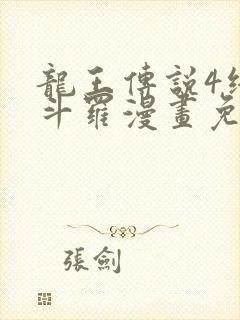 龍王傳說4終
斗羅漫畫免
張劍